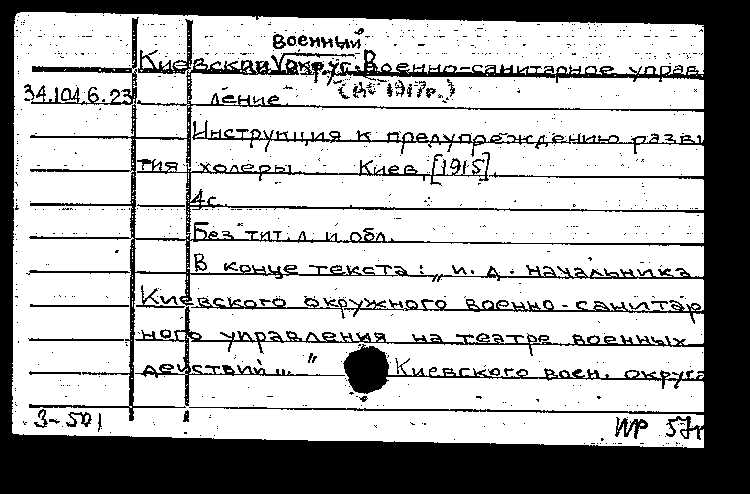 военный
Киевский округ. Военно-санитарное управ
34.104.6.23. ление (до 1917г.)
Инструкция к предупреждению разви
тия холеры. Киев, [1915].
4с.
Без тит. л. и обл.
В конце текста: „и. д. начальника
Киевского окружного военно-санитар
ного управления на театре военных
действий..." Киевского воен. округа
3-501